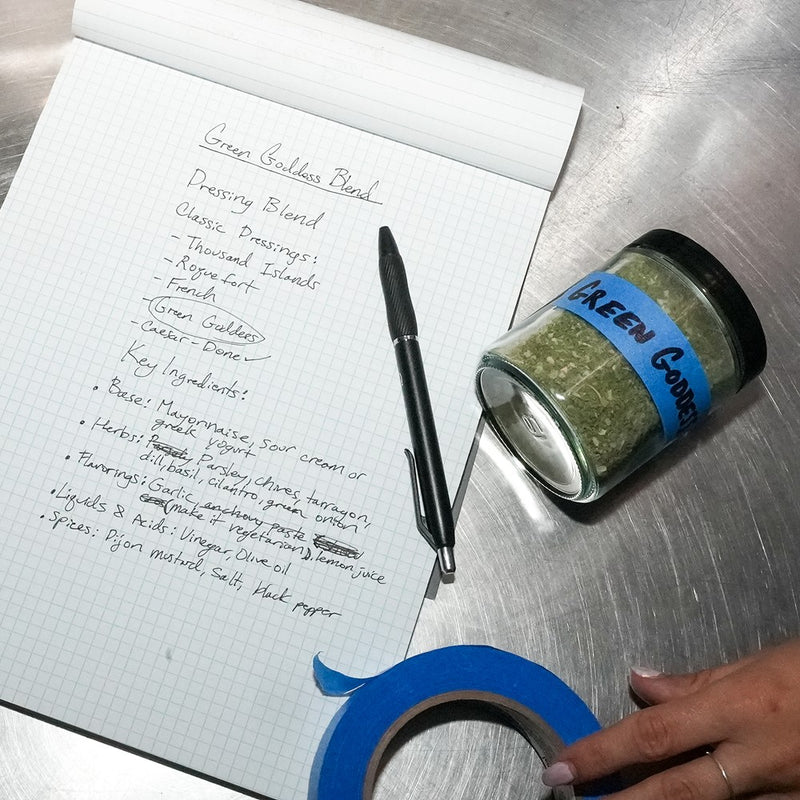 Green Goddess Blend
Dressing Blend
Classic Dressings:
- Thousand Islands
- Roquefort
- French
- Green Goddess
- Caesar - Done ✓
Key Ingredients:
• Base: Mayonnaise, sour cream or
greek yogurt
• Herbs: Parsley, chives, tarragon,
dill, basil, cilantro, green onion
• Flavorings: Garlic, anchovy paste
(make it vegetarian), lemon juice
• Liquids & Acids: Vinegar, Olive oil
• Spices: Dijon mustard, salt, black pepper
GREEN GODDESS